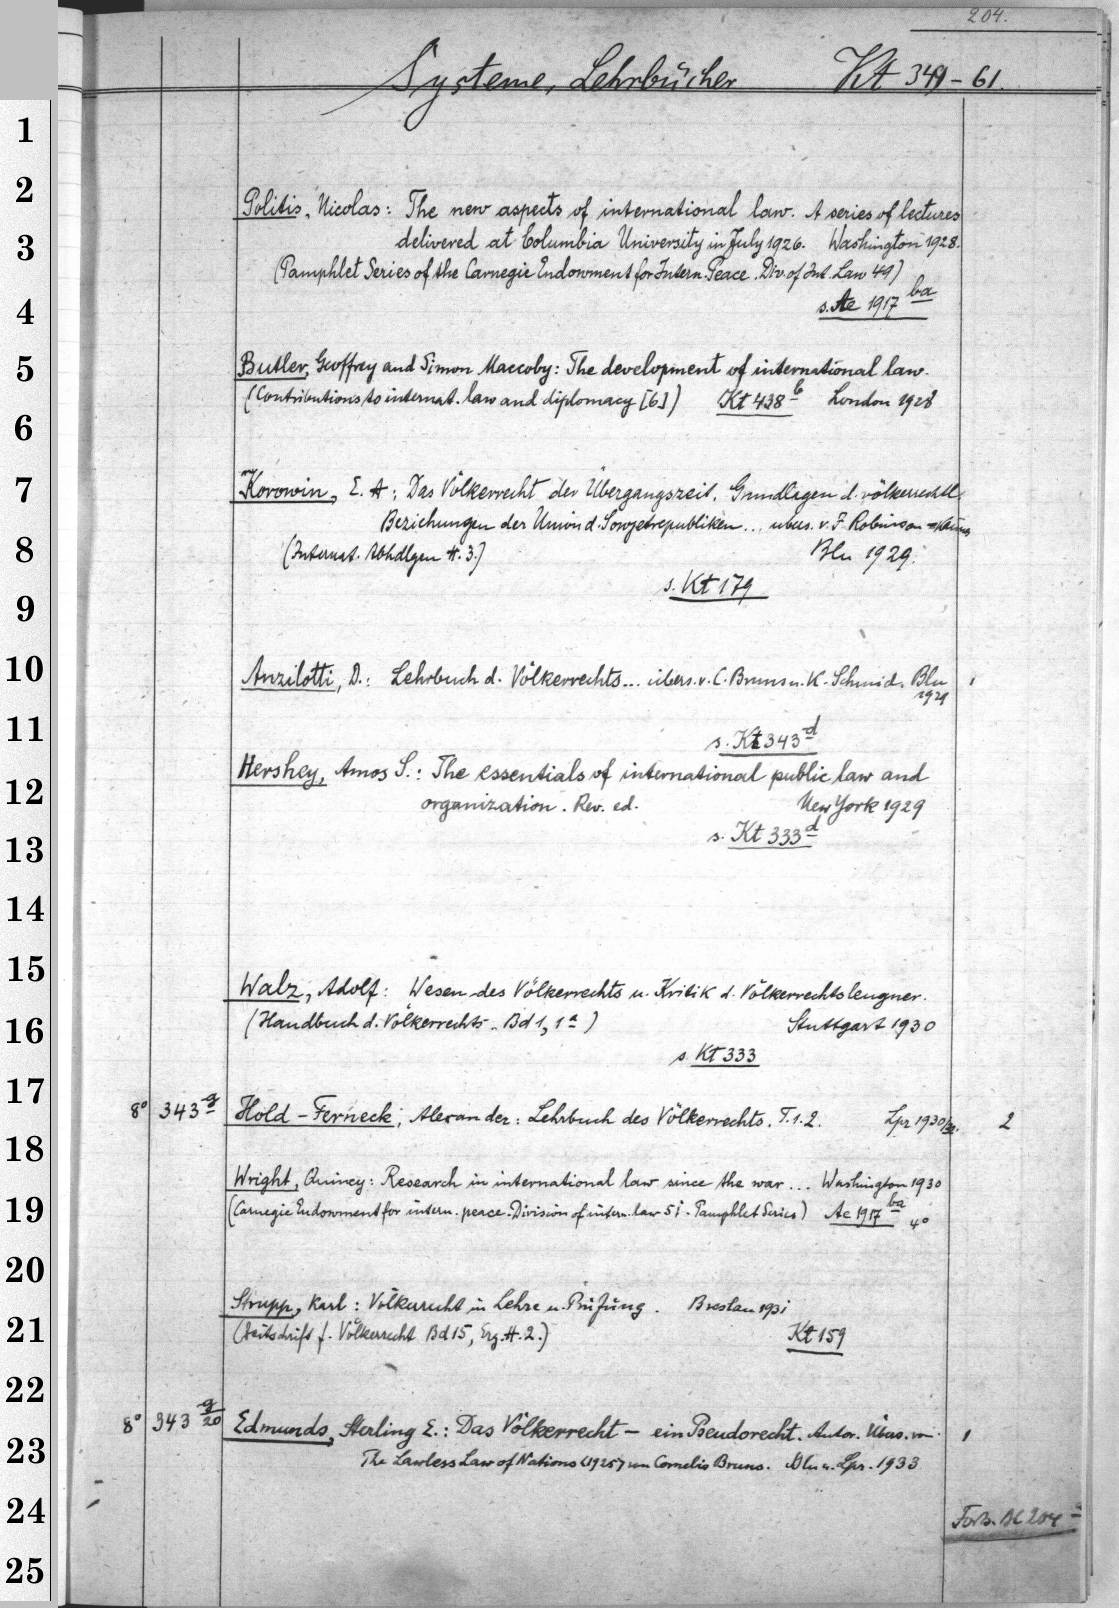 204.
Systeme, Lehrbücher Kt 349-61.
1
2
Politis, Nicolas: The new aspects of international law. A series of lectures
3
delivered at Columbia University in July 1926. Washington 1928.
(Pamphlet Series of the Carnegie Endowment for Intern. Peace. Div. of Int. Law 49)
4
s. Ae 1917 ba
5
Butler, Geoffrey and Simon Maccoby: The development of international law.
(Contributions to internat. law and diplomacy [6]) Kt 438 b London 1928
6
7
Korowin, E. A.: Das Völkerrecht der Übergangszeit. Grundlagen d. völkerrechtl.
Beziehungen der Union d. Sowjetrepubliken... übers. v. F. Robinson-Kaunas
8
(Internat. Abhdlgen H. 3.) Bln 1929.
9
s. Kt 179
10
Anzilotti, D.: Lehrbuch d. Völkerrechts... übers. v. C. Bruns u. K. Schmid. Bln 1929 1
11
s. Kt 343 d
12
Hershey, Amos S.: The essentials of international public law and
organization. Rev. ed. New York 1929
13
s. Kt 333 d
14
15
Walz, Adolf: Wesen des Völkerrechts u. Kritik d. Völkerrechtsleugner.
16
(Handbuch d. Völkerrechts. Bd 1, 1a) Stuttgart 1930
s. Kt 333
17
8° 343 g Hold-Ferneck, Alexander: Lehrbuch des Völkerrechts. T. 1.2. Lpz 1930/32. 2
18
Wright, Quincy: Research in international law since the war... Washington 1930
19
(Carnegie Endowment for intern. peace. Division of intern. law 51. Pamphlet Series) Ae 1917 ba 4°
20
Strupp, Karl: Völkerrecht in Lehre u. Prüfung. Breslau 1931
21
(Zeitschrift f. Völkerrecht Bd 15, Erg. H. 2.) Kt 159
22
8° 343 g/20 Edmunds, Sterling E.: Das Völkerrecht – ein Pseudorecht. Autor. Übers. von 1
23
The Lawless Law of Nations (1925) von Cornelis Bruns. Bln u. Lpz. 1933
24
Forts. Bl 204
25